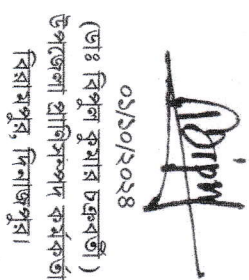 Bipul
০১/১০/২০২৪
(ডাঃ বিপুল কুমার চক্রবর্তী)
উপজেলা প্রাণিসম্পদ কর্মকর্তা
বিরামপুর, দিনাজপুর।